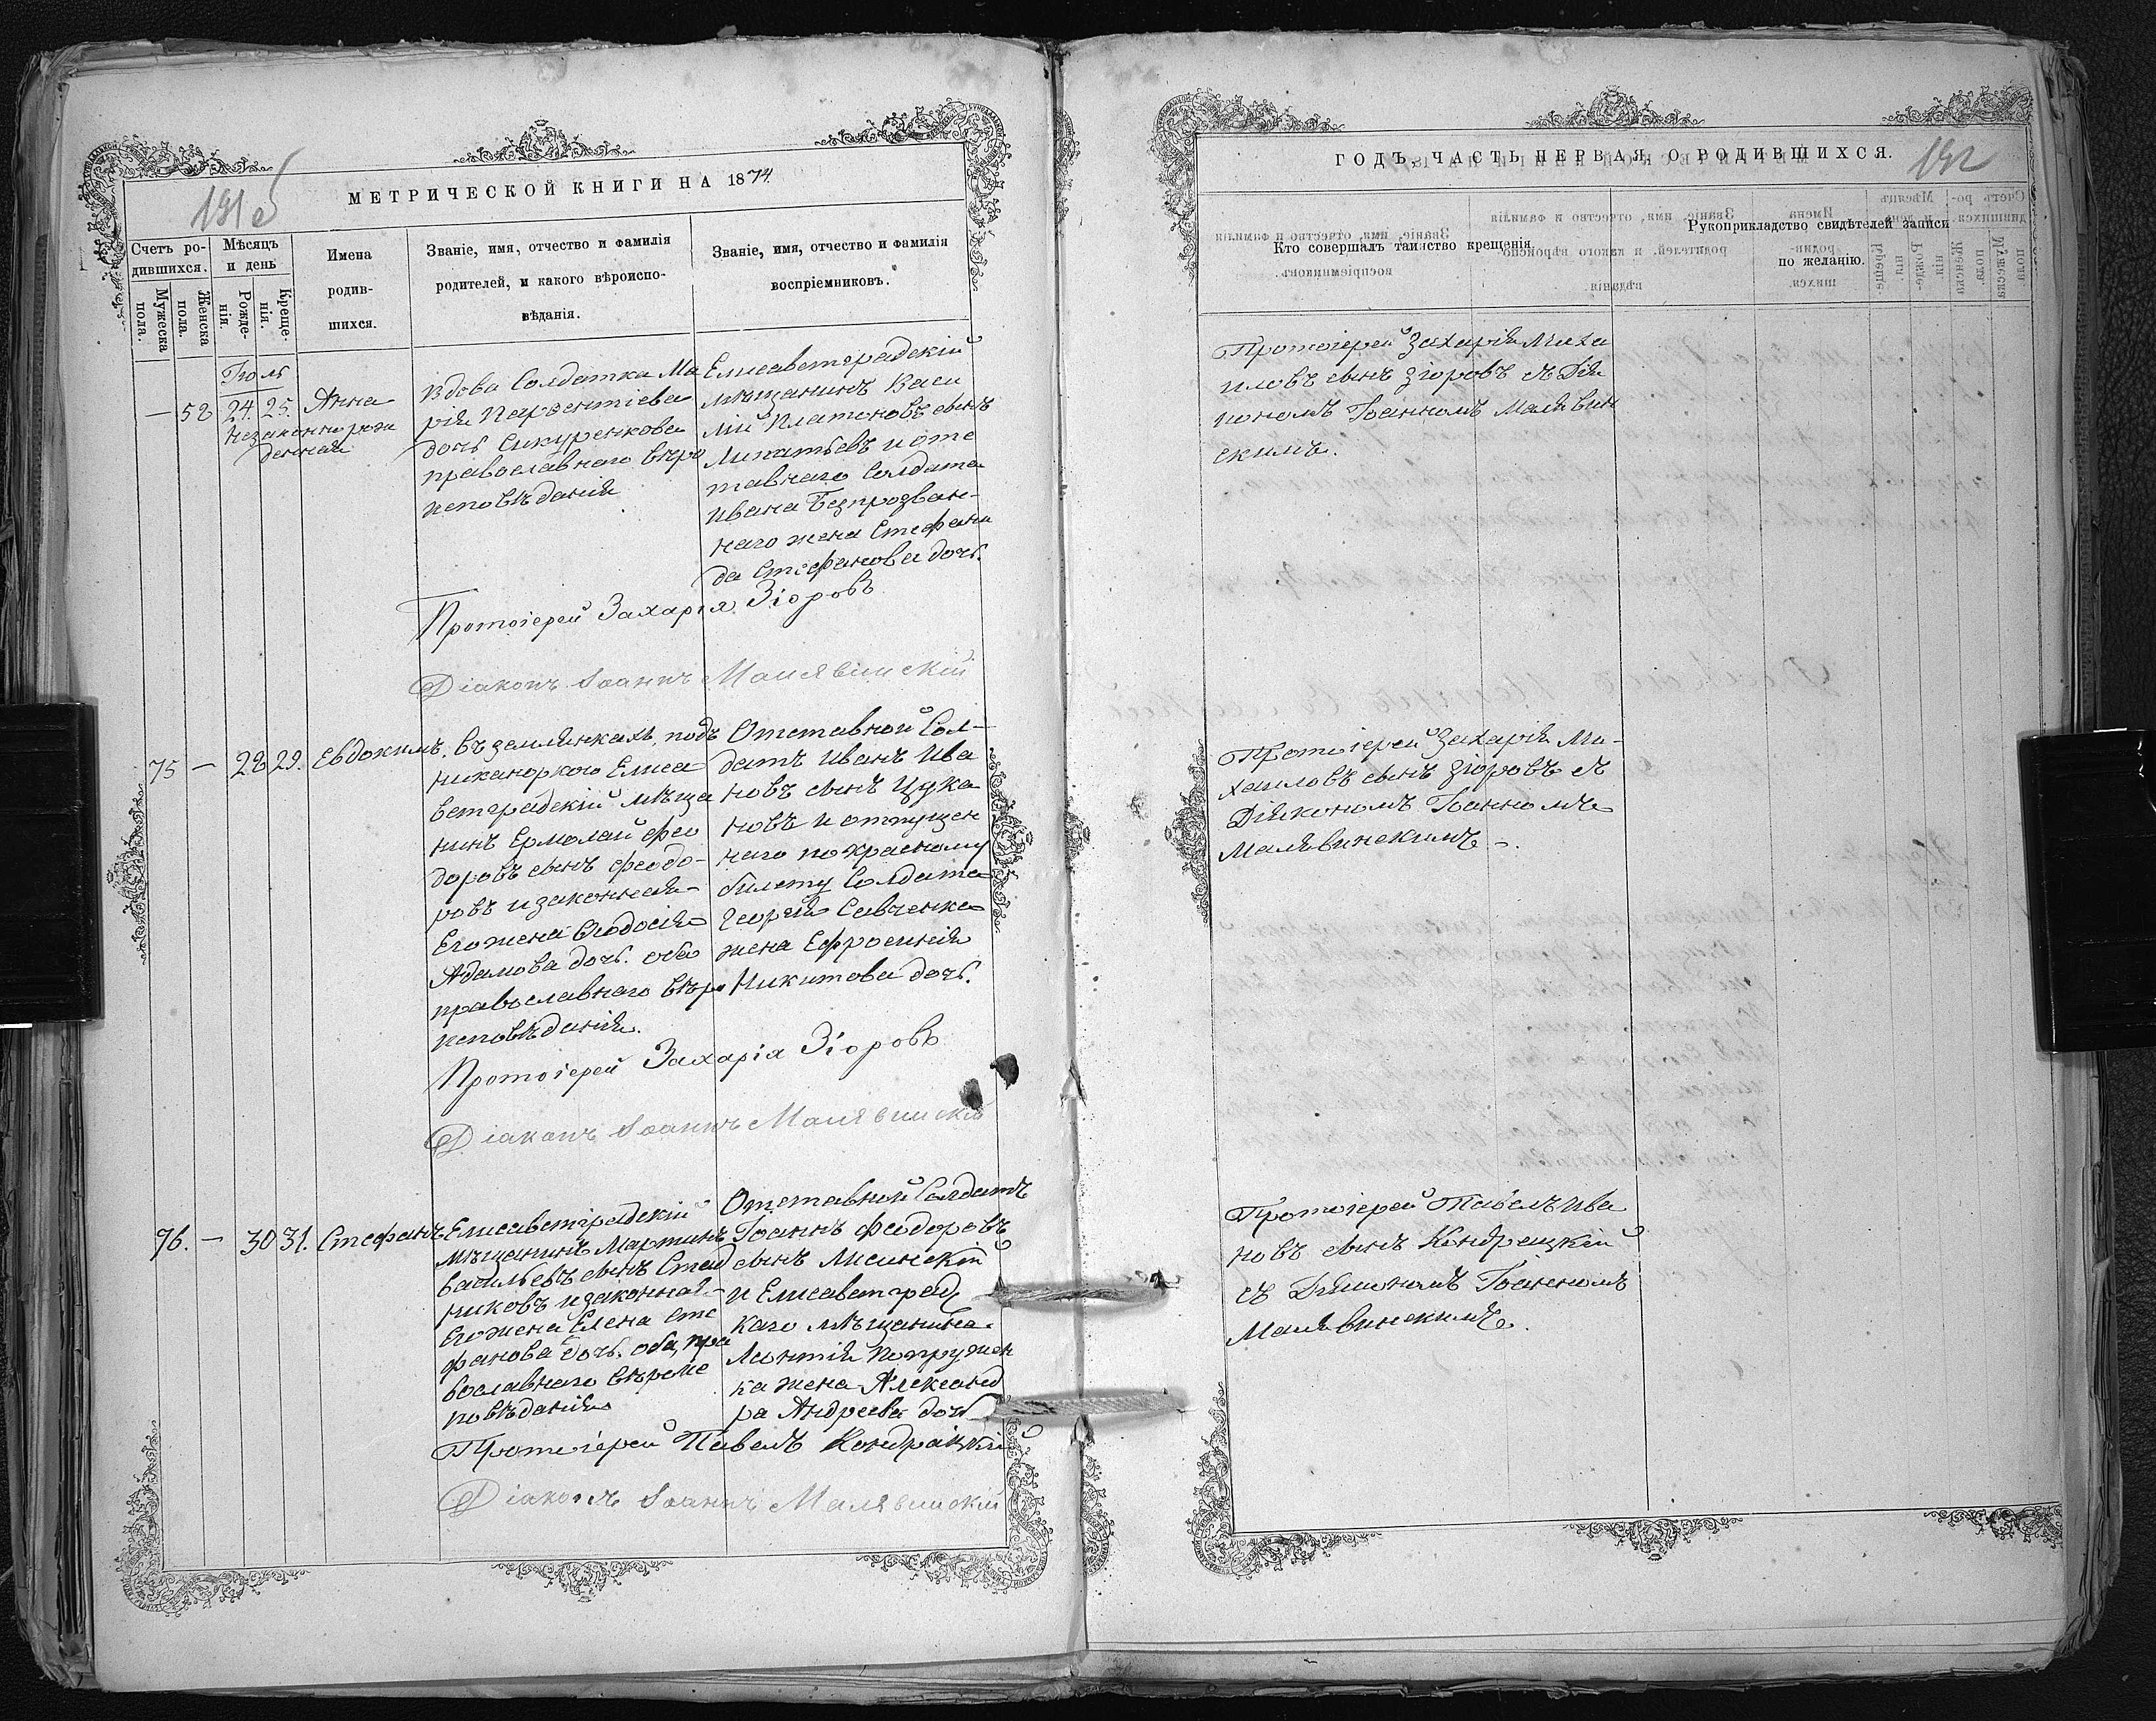 191 об
МЕТРИЧЕСКОЙ КНИГИ НА 1874
Счетъ ро-
дившихся.
Мужеска
пола.
Женска
пола.
Мѣсяцъ
и день
Рожде-
нія.
Креще-
нія.
Имена
родив-
шихся.
Званіе, имя, отчество и фамилія
родителей, и какого вѣроиспо-
вѣданія.
Званіе, имя, отчество и фамилія
воспріемниковъ.
Іюль
— 58 24. 25. Анна
незаконно рож
денная
Вдова Солдатка Ма
рія Парфентіева
дочь Сикуренкова
православнаго вѣро
исповѣданія
Елисаветградскій
мѣщанинъ Васи
лій Платоновъ сынъ
Липатьевъ и отс
тавнаго Солдата
Ивана Безпрозван-
наго жена Стефани
да Стефанова дочь.
Протоіерей Захарія Зіоровъ
Діаконъ Іоаннъ Малявинскій
75 — 28 29. Евдокимъ.
Въ землянкахъ, подъ
Никаноркою Елиса
ветградскій мѣща
нинъ Ермолай Фео
доровъ сынъ Феодо-
ровъ и законная
Его жена Феодосія
Адамова дочь. оба
православнаго вѣро
исповѣданія.
Отставной Сол-
датъ Иванъ Ива
новъ сынъ Цука
новъ и отпущен
наго по красному
билету Солдата
Георгія Савченка
жена Ефросинія
Никитова дочь.
Протоіерей Захарія Зіоровъ
Діаконъ Іоаннъ Малявинскій
76. — 30 31. Стефанъ
Елисаветградскій
Мѣщанинъ Мартинъ
Васильевъ сынъ
никовъ и законная
Его жена Елена Сте
фанова дочь. оба, пра
вославнаго вѣроис
повѣданія
Отставной Солдатъ
Іоаннъ Феодоровъ
сынъ Лисинскій
и Елисаветград
каго мѣщанина
Леонтія Попружен
ка жена Александ
ра Андреева дочь
Протоіерей Павелъ Кондрацкій
Діаконъ Іоаннъ Малявинскій
ГОДЪ, ЧАСТЬ ПЕРВАЯ, О РОДИВШИХСЯ.
192
Кто совершалъ таинство крещенія.
Рукоприкладство свидѣтелей записи
по желанію.
Протоіерей Захарія Миха
иловъ сынъ Зіоровъ съ Діа
кономъ Іоанномъ Малявин
скимъ.
Протоіерей Захарія Ми-
хаиловъ сынъ Зіоровъ съ
Діякономъ Іоанномъ
Малявинскимъ.
Протоіерей Павелъ Ива
новъ сынъ Кондрацкій
съ Діякономъ Іоанномъ
Малявинскимъ.